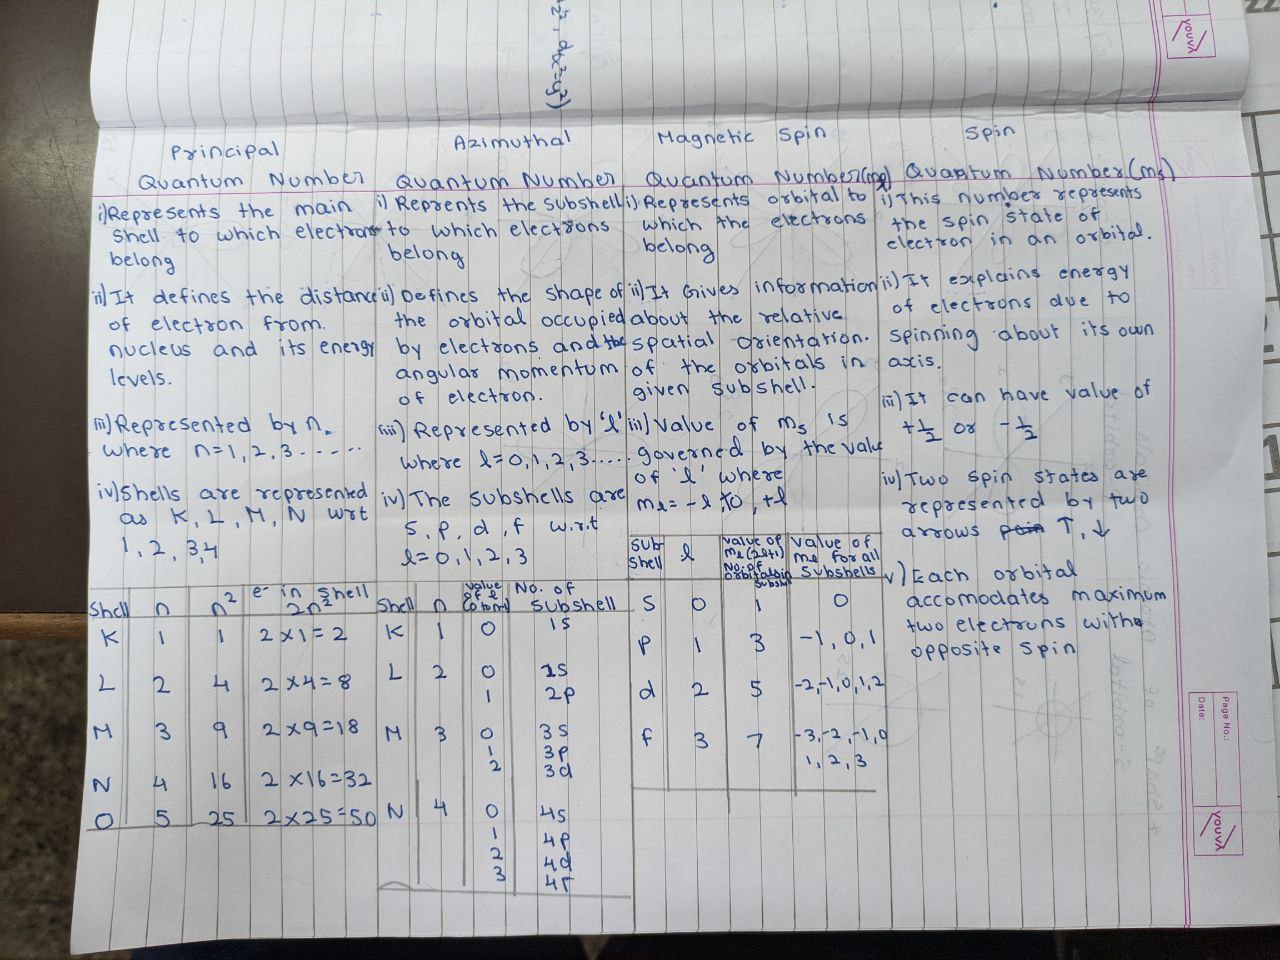 +z², dx²-y²)
YOUVA
Principal
Quantum Number
i) Represents the main
shell to which electrons
belong
ii) It defines the distance
of electron from
nucleus and its energy
levels.
iii) Represented by n.
where n=1,2,3......
iv) Shells are represented
as K, L, M, N wrt
1, 2, 3, 4
Shell n n² e- in shell 2n²
K 1 1 2×1=2
L 2 4 2×4=8
M 3 9 2×9=18
N 4 16 2×16=32
O 5 25 2×25=50
Azimuthal
Quantum Number
i) Reprents the subshell
to which electrons
belong
ii) Defines the shape of
the orbital occupied
by electrons and the
angular momentum
of electron.
iii) Represented by 'l'
where l=0,1,2,3.....
iv) The subshells are
s, p, d, f w.r.t
l=0,1,2,3
Shell n value of l (0 to n-1) No. of subshell
K 1 0 1s
L 2 0 2s
1 2p
M 3 0 3s
1 3p
2 3d
N 4 0 4s
1 4p
2 4d
3 4f
Magnetic Spin
Quantum Number(ml)
i) Represents orbital to
which the electrons
belong
ii) It Gives information
about the relative
spatial orientation.
of the orbitals in
given subshell.
iii) Value of ms is
governed by the value
of 'l' where
ml = -l to, +l
Sub shell l Value of ml (2l+1) No. of orbitals in subshell Value of ml for all subshells
S 0 1 0
P 1 3 -1, 0, 1
d 2 5 -2,-1,0,1,2
f 3 7 -3,-2,-1,0
1, 2, 3
Spin
Quantum Number(ms)
i) This number represents
the spin state of
electron in an orbital.
ii) It explains energy
of electrons due to
spinning about its own
axis.
iii) It can have value of
+½ or -½
iv) Two spin states are
represented by two
arrows ↑, ↓
v) Each orbital
accomodates maximum
two electrons with
opposite spin
Page No.:
Date:
YOUVA